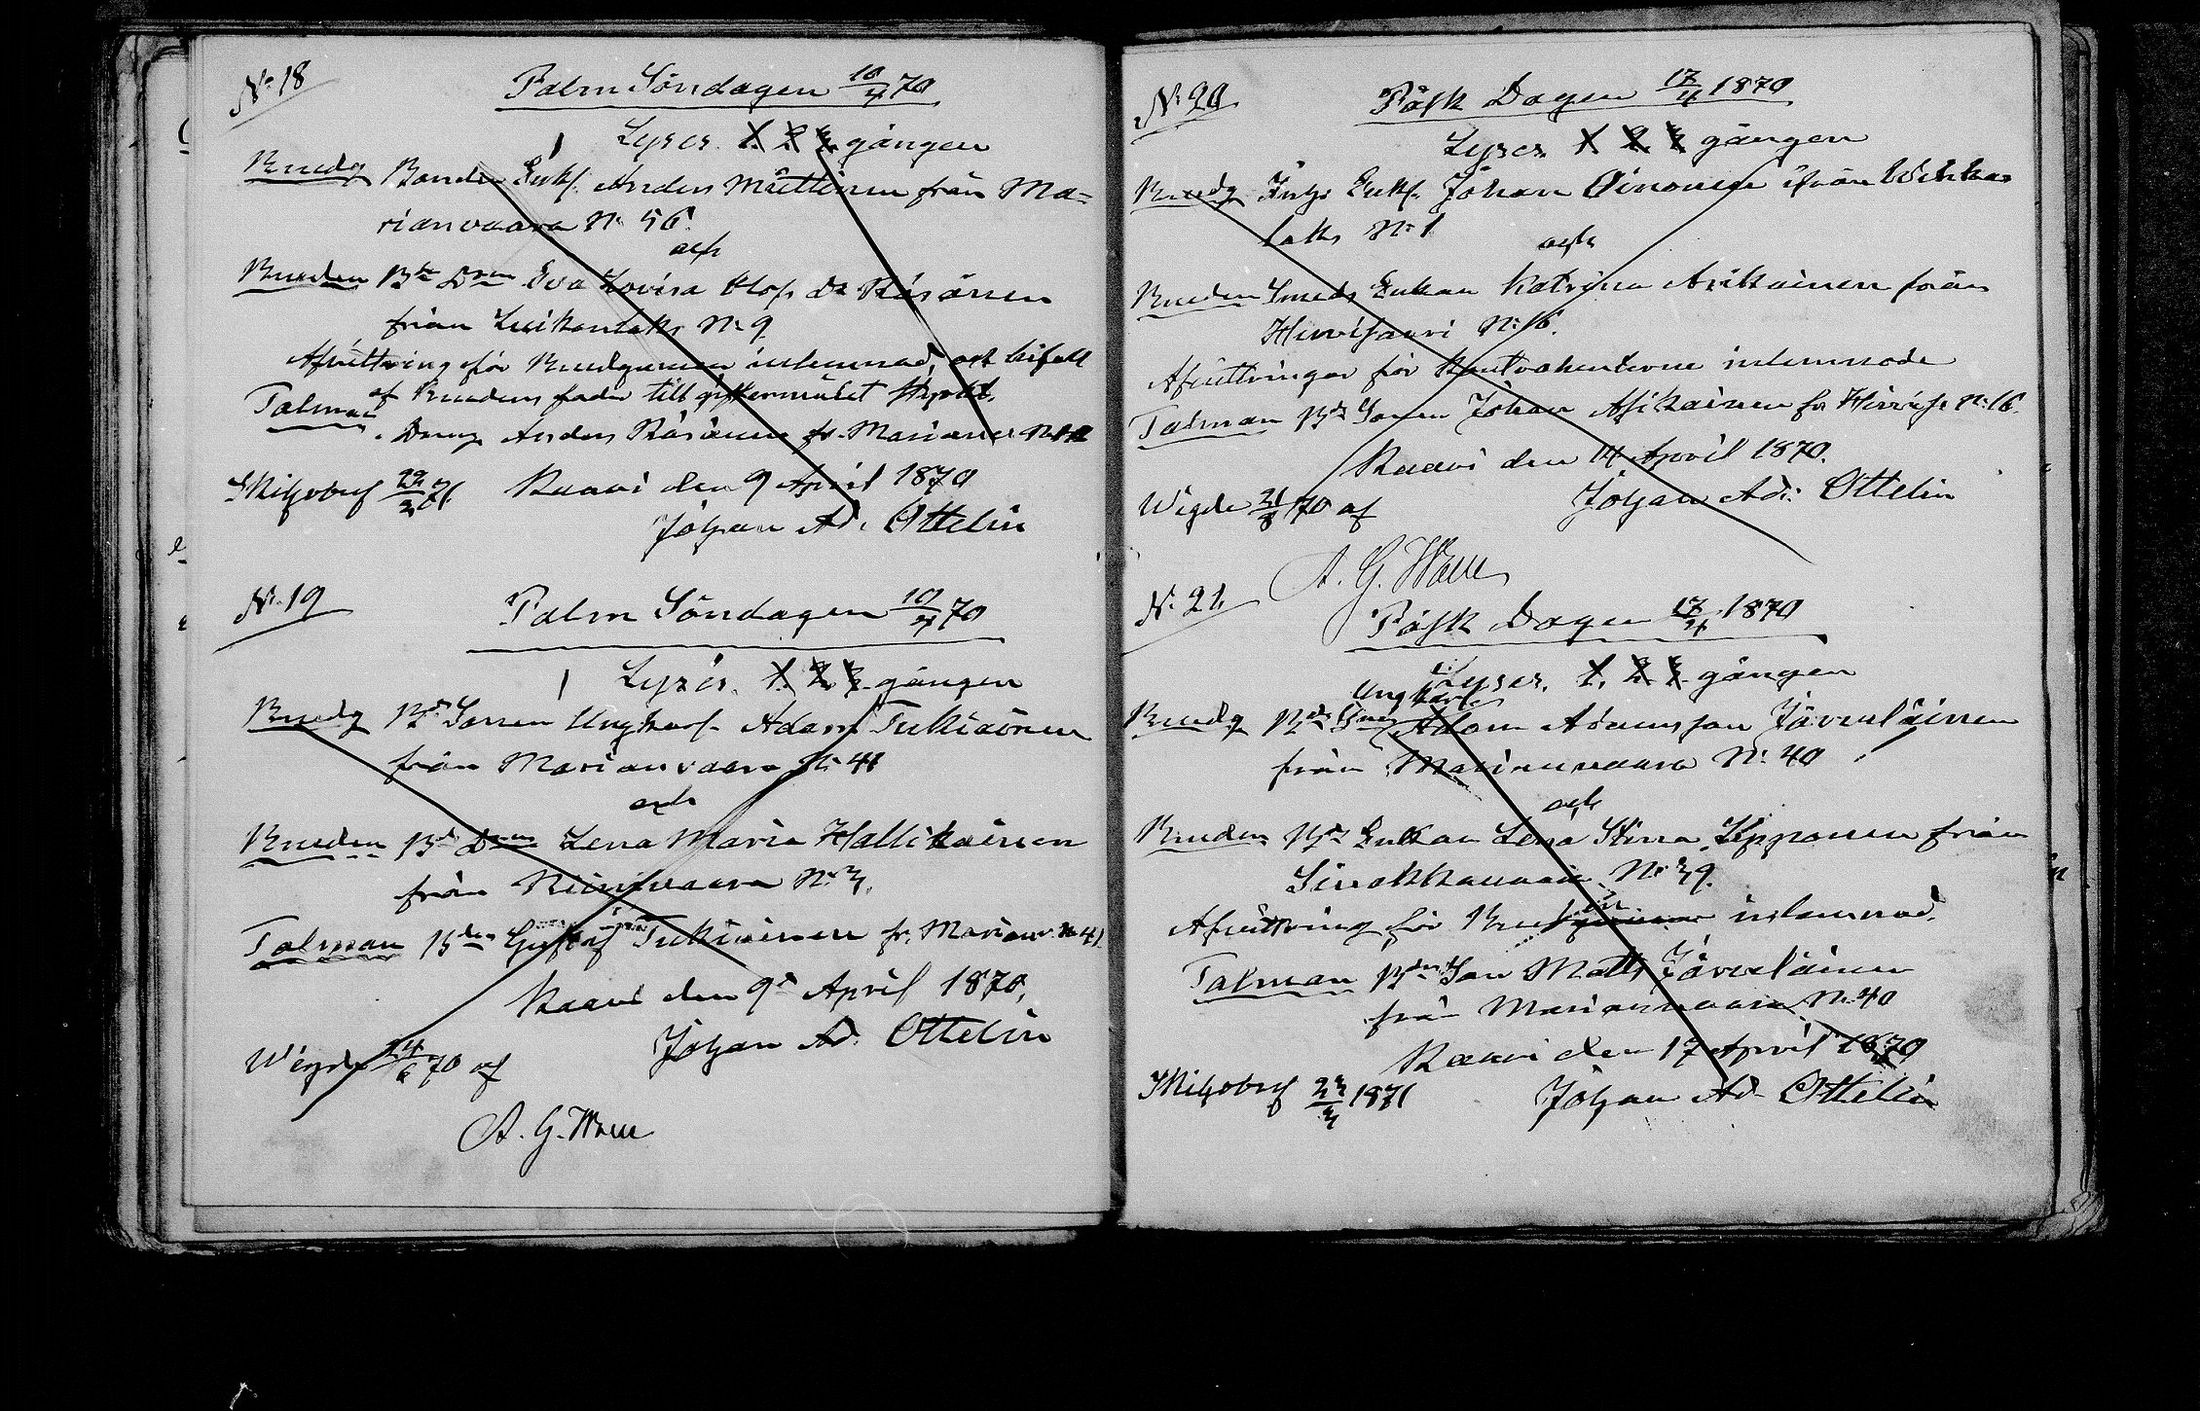 N:18
Palm Söndagen 10/4 70
1 Lyses. 1. 2. 3. gången
Brudg Bonden Enkl. Anders Müttinen från Ma=
rianvaara N: 56.
och
Bruden Bde Dren Eva Lovisa Olofs dr Räsänen
från Luikonlaks N: 9
Afvittring för Brudgummen inlemnad, och bifall
af Brudens fader till giftermålet styrkt.
Talman Anders Räsänen fr. Marianv
Skiljobref 22/3 71. Kaavi den 9 April 1870
Johan Ad. Ottelin
N: 19
Palm Söndagen 10/4 70
1 Lyses. 1. 2. 3. gången
Brudg Bd Sonen Ungkarl. Adam Tukiainen
från Marianvaara N: 41
och
Bruden Bd Dren Lena Maria Hallikainen
från Niinivaara N: 3.
Talman Bden Gustaf Tukiainen fr. Marianv. N: 41.
Kaavi den 9 April 1870.
Johan Ad. Ottelin
Wigde 24/6 70 af
A. G. Walle
N: 20
Påsk Dagen 17/4 1870
Lyses. 1 2. 3 gången
Brudg Inhs Enkl. Johan Oinonen ifrån Wehka
laks N: 1
och
Bruden Smeds Enkan Katrina Asikainen från
Hirvisaari N: 16.
Afvittringar för Kontrahenterne inlemnade
Talman Bds Sonen Johan Asikainen fr Hirvis. N: 16.
Kaavi den 14 April 1870.
Wigde 21/8 70 af Johan Ad: Ottelin
A. G. Walle
N: 21.
Påsk Dagen 17/4 1870
Lyses. 1. 2. 3. gången
Ungkarl.
Brudg Bds Son Adam Adamsson Jäverläinen
från Marianvaara N: 40
och
Bruden Bds Enkan Lena Stina Lipponen från
Sivakkavaara N: 39.
Afvittring för Bruden inlemnad.
Talman Bden Son Matts Jäverläinen
från Marianvaara N: 40
Kaavi den 17 April 1870
Skiljobref 23/3 1871 Johan Ad. Ottelin